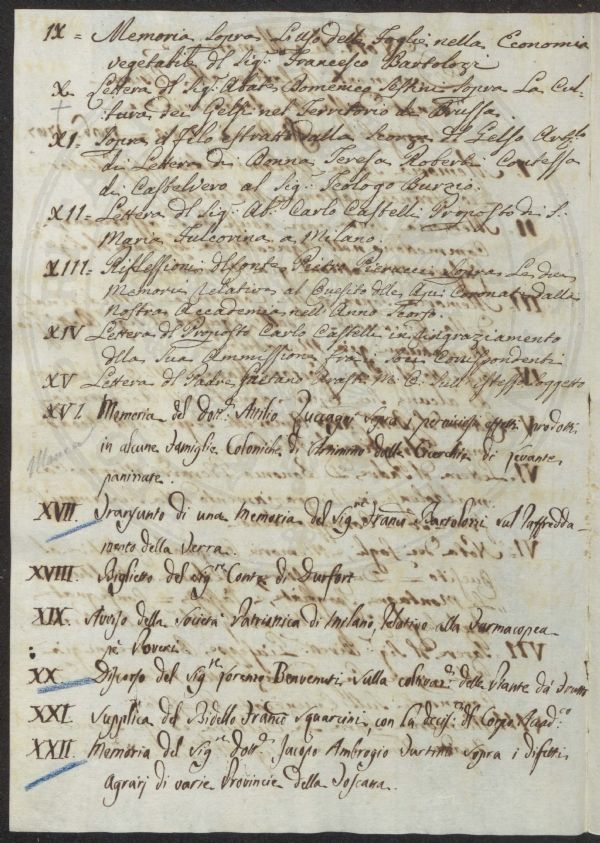 IX = Memoria Sopra L'uso delle Foglie nella Economia
vegetabile dl Sig.r Francesco Bartolozi
X. Lettera dl Sig.r Abate Domenico Sestini Sopra La Cul-
tura dei Gelsi nel Territorio di Brussa.
XI= Sopra il filo estratto dalla Scorza dl Gelso Artic.lo
di Lettera di Donna Teresa Roberti Contessa
di Castelvero al Sig.r Teologo Burzio.
XII= Lettera dl Sig.r Ab.e Carlo Castelli Proposto di S.
Maria Fulcorina a Milano.
XIII= Riflessioni Pietro Pierucci Sopra Le due
Memorie relative al Quesito dlle Coronate dalla
Nostra Accademia nell'Anno Scorso.
XIV Lettera dl Proposto Carlo Castelli in ringraziamento
dlla Sua Ammissione fra i Soci Corrispondenti
XV Lettera dl Padre Gaetano sull'istesso soggetto
XVI. Memoria del dott.r Attilio Zuccagni sopra i perniciosi effetti prodotti
in alcune Famiglie Coloniche di dalle Cicerchie di Levante
paninate.
XVII. Transunto di una Memoria del Sig.re Franc.o Bartolozzi sul Raffredda-
mento della Terra.
XVIII. Biglietto del Sig.re Conte di Durfort
XIX. Avviso della Società Patriotica di Milano, relativo alla Farmacopea
pe' Poveri.
XX. Discorso del Sig.re Lorenzo Benvenuti sulla coltivaz.e delle Piante da Frutto
XXI. Supplica del Bidello Franco Squarcini, con la decis.e dl Corpo Accad.co
XXII. Memoria del Sig.re dott.r Jacopo Ambrogio Tartini sopra i difetti
Agrarj di varie Provincie della Toscana.